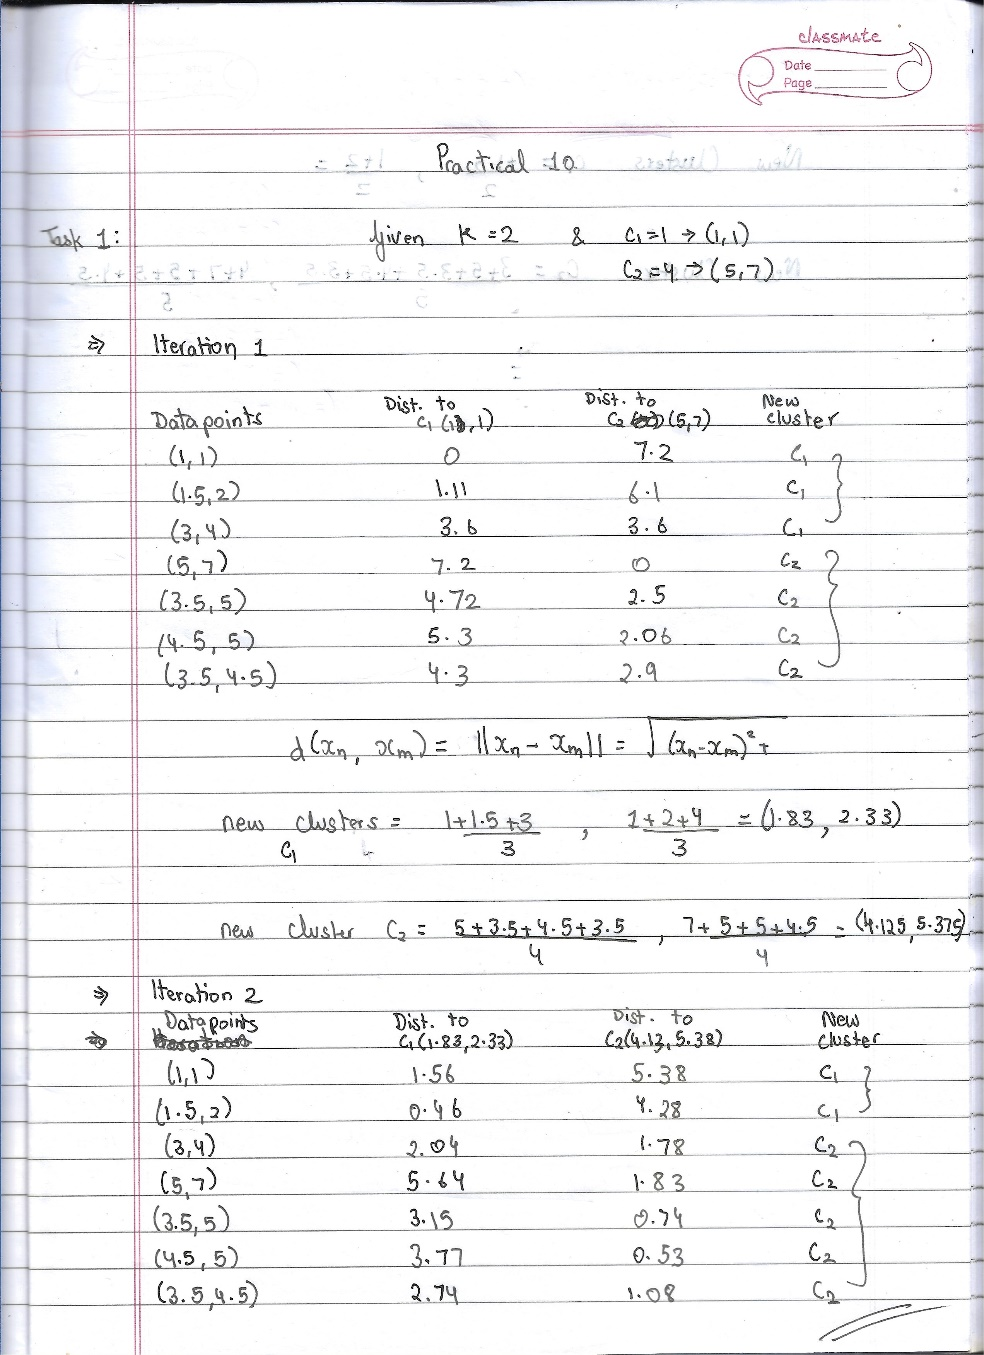 classmate
Date
Page
Practical 10
Task 1: Given K = 2 & C₁=1 → (1,1)
C₂=4 → (5,7)
⇒ Iteration 1
Data points Dist. to C₁ (1,1) Dist. to C₂ (5,7) New cluster
(1,1) 0 7.2 C₁
(1.5,2) 1.11 6.1 C₁
(3,4) 3.6 3.6 C₁
(5,7) 7.2 0 C₂
(3.5,5) 4.72 2.5 C₂
(4.5,5) 5.3 2.06 C₂
(3.5,4.5) 4.3 2.9 C₂
d(xₙ, xₘ) = ||xₙ - xₘ|| = √(xₙ-xₘ)² +
new clusters C₁ = (1+1.5+3)/3 , (1+2+4)/3 = (1.83, 2.33)
new cluster C₂ = (5+3.5+4.5+3.5)/4 , (7+5+5+4.5)/4 = (4.125, 5.375)
⇒ Iteration 2
⇒ Data points Dist. to C₁(1.83,2.33) Dist. to C₂(4.13, 5.38) New cluster
(1,1) 1.56 5.38 C₁
(1.5,2) 0.46 4.28 C₁
(3,4) 2.04 1.78 C₂
(5,7) 5.64 1.83 C₂
(3.5,5) 3.15 0.74 C₂
(4.5,5) 3.77 0.53 C₂
(3.5,4.5) 2.74 1.08 C₂